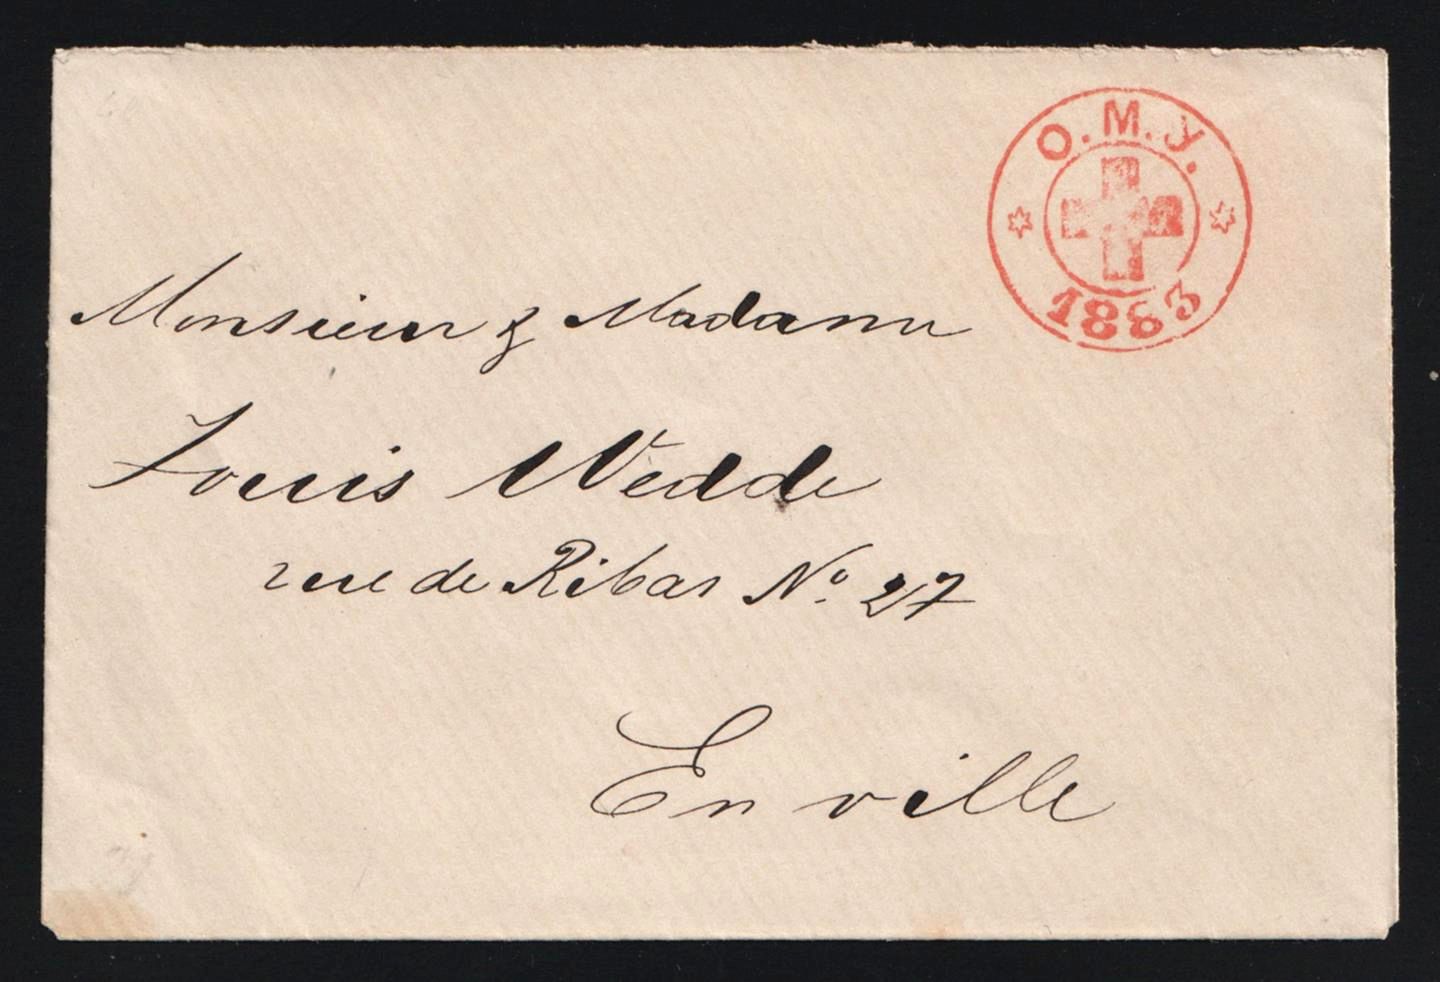 О.М.У.
1883
Monsieur & Madame
Louis Wedde
rue de Ribas No. 27
En ville